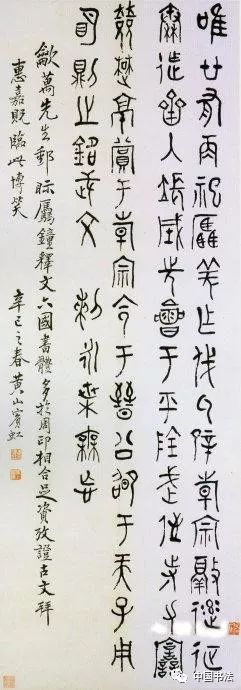 唯廿又再祀驫羌乍戎氒辟倝宗敲達征
秦迮齊入長城先會于平陰武侄寺力
敓楚京賞于倝宗令于晉公卲于天子用
明則之銘武文 剌永枼
先生郵眎驫鐘釋文六國書體多於周印相合足資攷證古文拜
惠嘉貺臨此博笑 辛巳之春黃山賓虹
中国书法